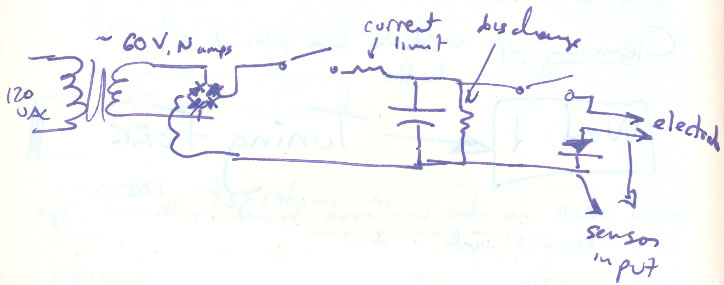 ~ 60 V, N amps
current
limit
discharge
120
VAC
electrode
sensor
input